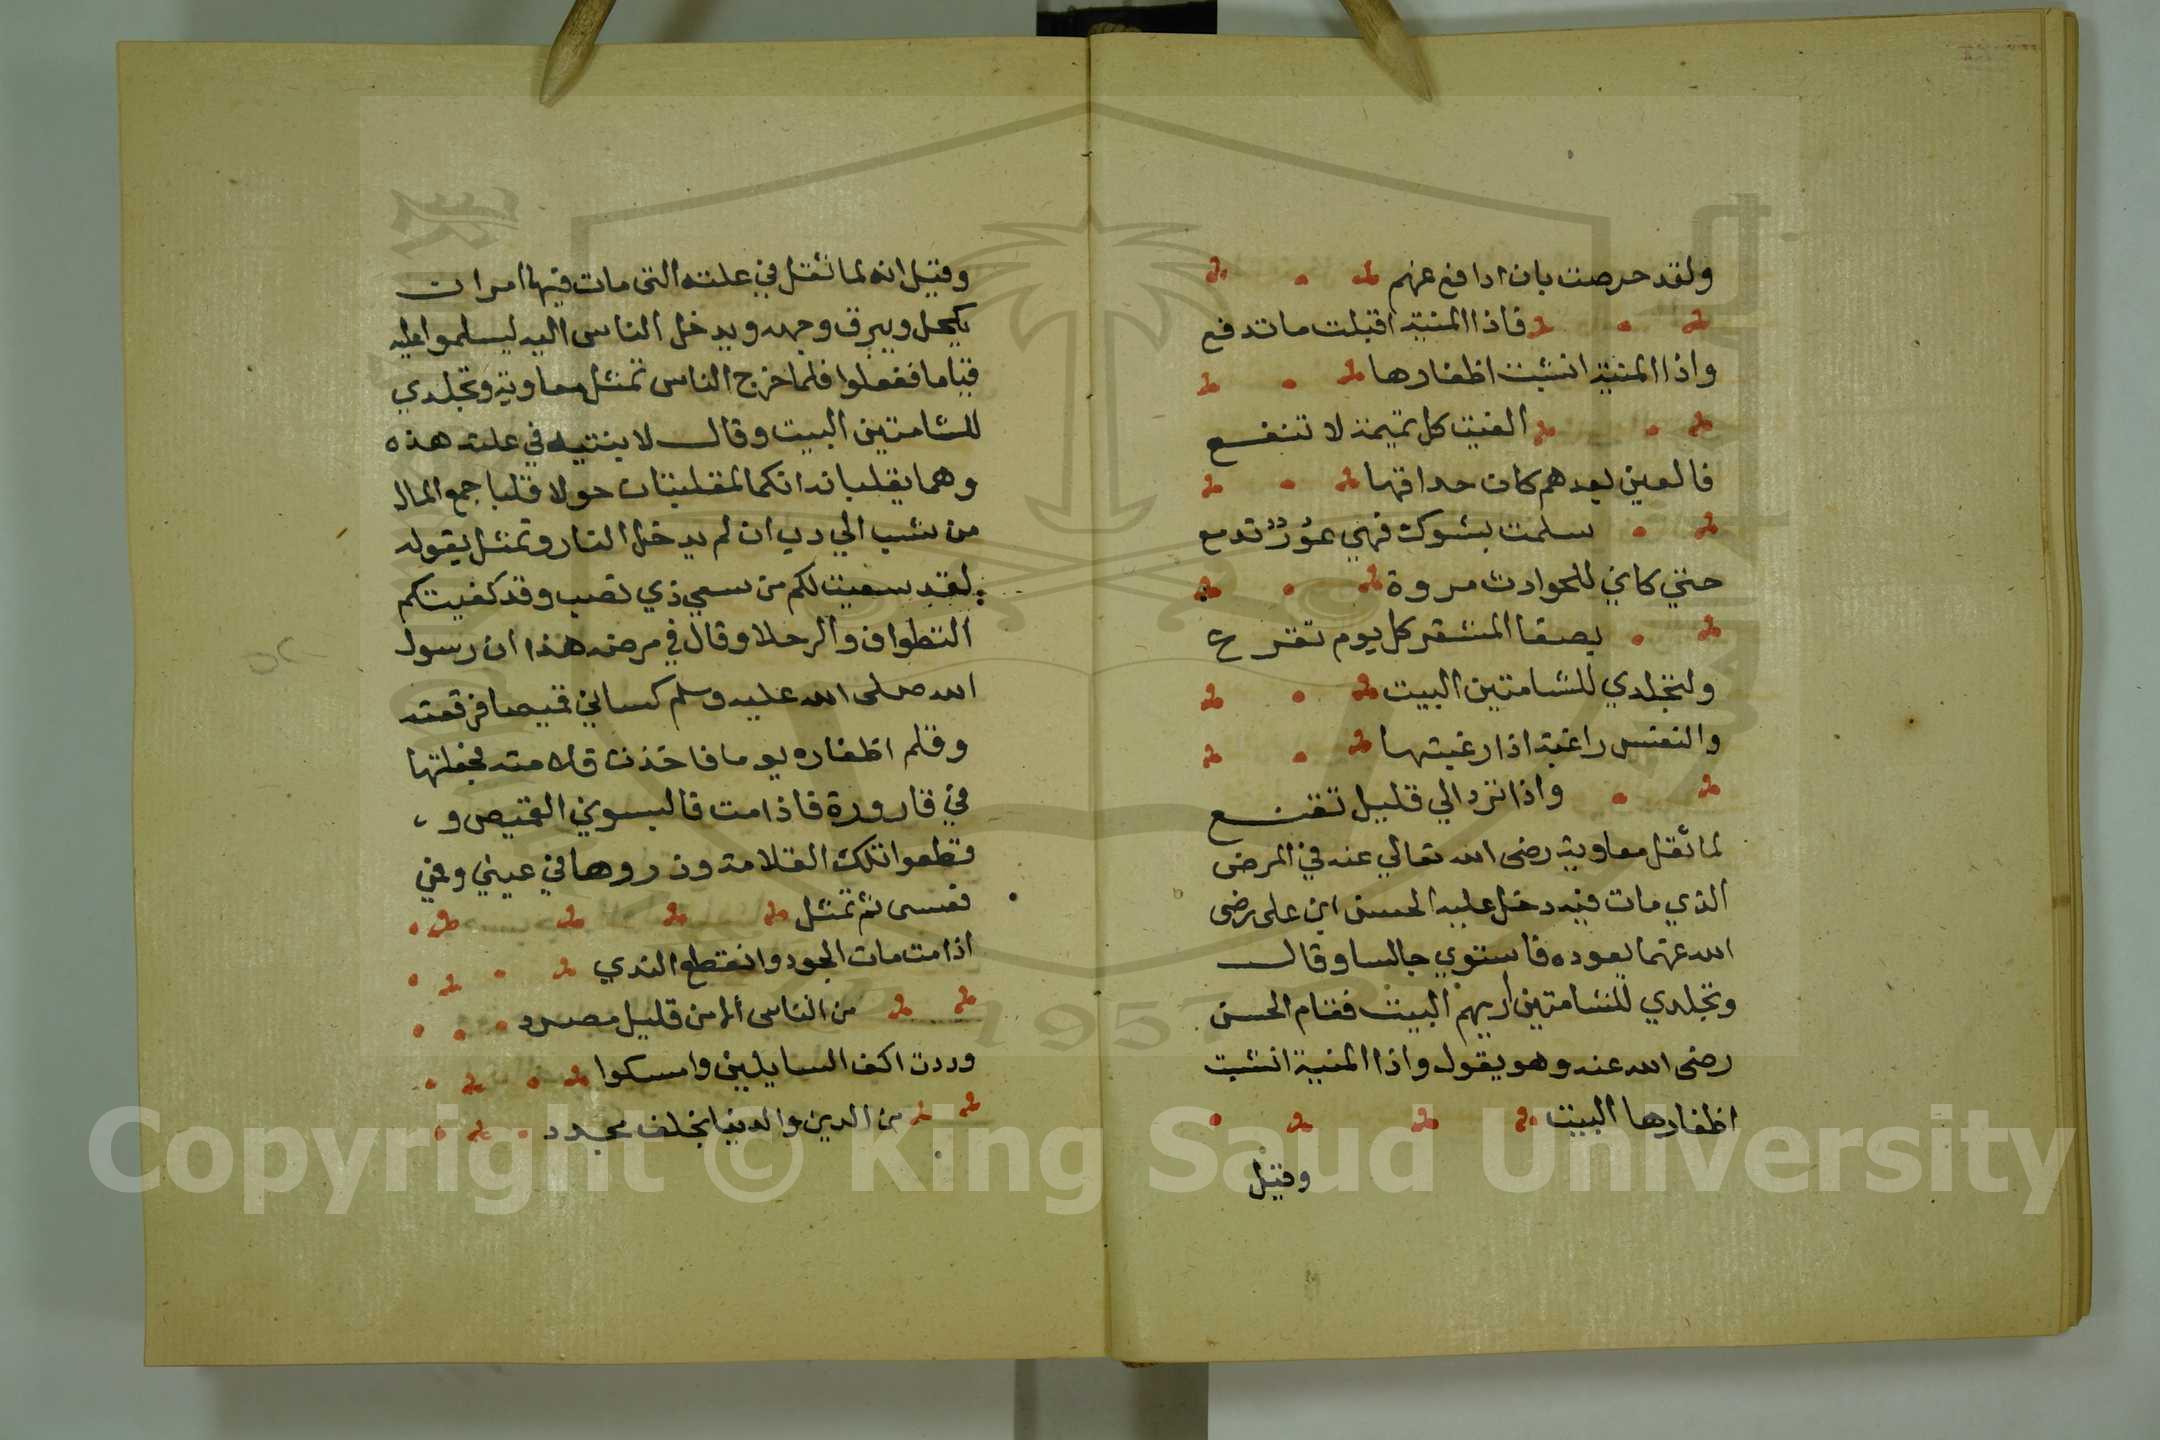 ولقد حرصت بان ادافع عنهم
فاذا المنية اقبلت ما تدفع
واذا المنية انشبت اظفارها
الفيت كل تميمة لا تنفع
فالعين بعدهم كان حداقها
سلمت بشوك فهي عور تدمع
حتي كاني للحوادث مروة
بصفا المشقر كل يوم تقرع
ولتجلدي للشامتين البيت
والنفس راغبة اذا رغبتها
واذا ترد الي قليل تقنع
لما ثقل معاوية رضى الله تعالي عنه في المرض
الذي مات فيه دخل عليه الحسن ابن على رضى
الله عنهما يعوده فاستوي جالسا وقال
وتجلدي للشامتين اريهم البيت فقام الحسن
رضى الله عنه وهو يقول واذا المنية انشبت
اظفارها البيت
وقيل
وقيل انه لما ثقل في علته التي مات فيها امر ان
يكحل ويبرق وجهه ويدخل الناس اليه ليسلموا عليه
قياما ففعلوا فلما خرج الناس تمثل معاوية وتجلدي
للشامتين البيت وقال لابنتيه في علته هذه
وهما يقلبانه انكما لمقلبتان حولا قلبا جمع المال
من شب الي دب ان لم يدخل النار وتمثل بقوله
لقد سعيت لكم من سعي ذي نصب وقد كفيتكم
التطواف والرحلا وقال في مرضه هذا ان رسول
الله صلى الله عليه وسلم كساني قميصا فرقعته
وقلم اظفاره يوما فاخذت قلامته فجعلتها
في قارورة فاذا مت فالبسوني القميص و
قطعوا تلك القلامة وذروها في عيني وفي
نفسى ثم تمثل
اذا مت مات الجود وانقطع الندي
من الناس الا من قليل مصرد
وردت اكف السايلين وامسكوا
من الدين والدنيا بخلف مجدد
Copyright © King Saud University
1957